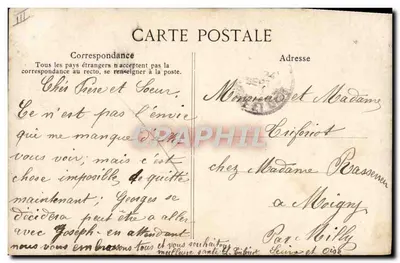 III
CARTE POSTALE
Correspondance
Tous les pays étrangers n'acceptent pas la
correspondance au recto, se renseigner à la poste.
Adresse
Chers Frère et Soeur.
Ce n'est pas l'envie
qui me manque d'aller
vous voir; mais c'est
chose imposible, de quitte
maintenant; Georges se
decidera peut être a aller
avec Joseph. en attendant
nous vous embrassons tous et vous souhaitons
meilleure santé
Monsieur et Madame
chez Madame
a Moigny
Par Milly
Seine et Oise
CPAPHIL